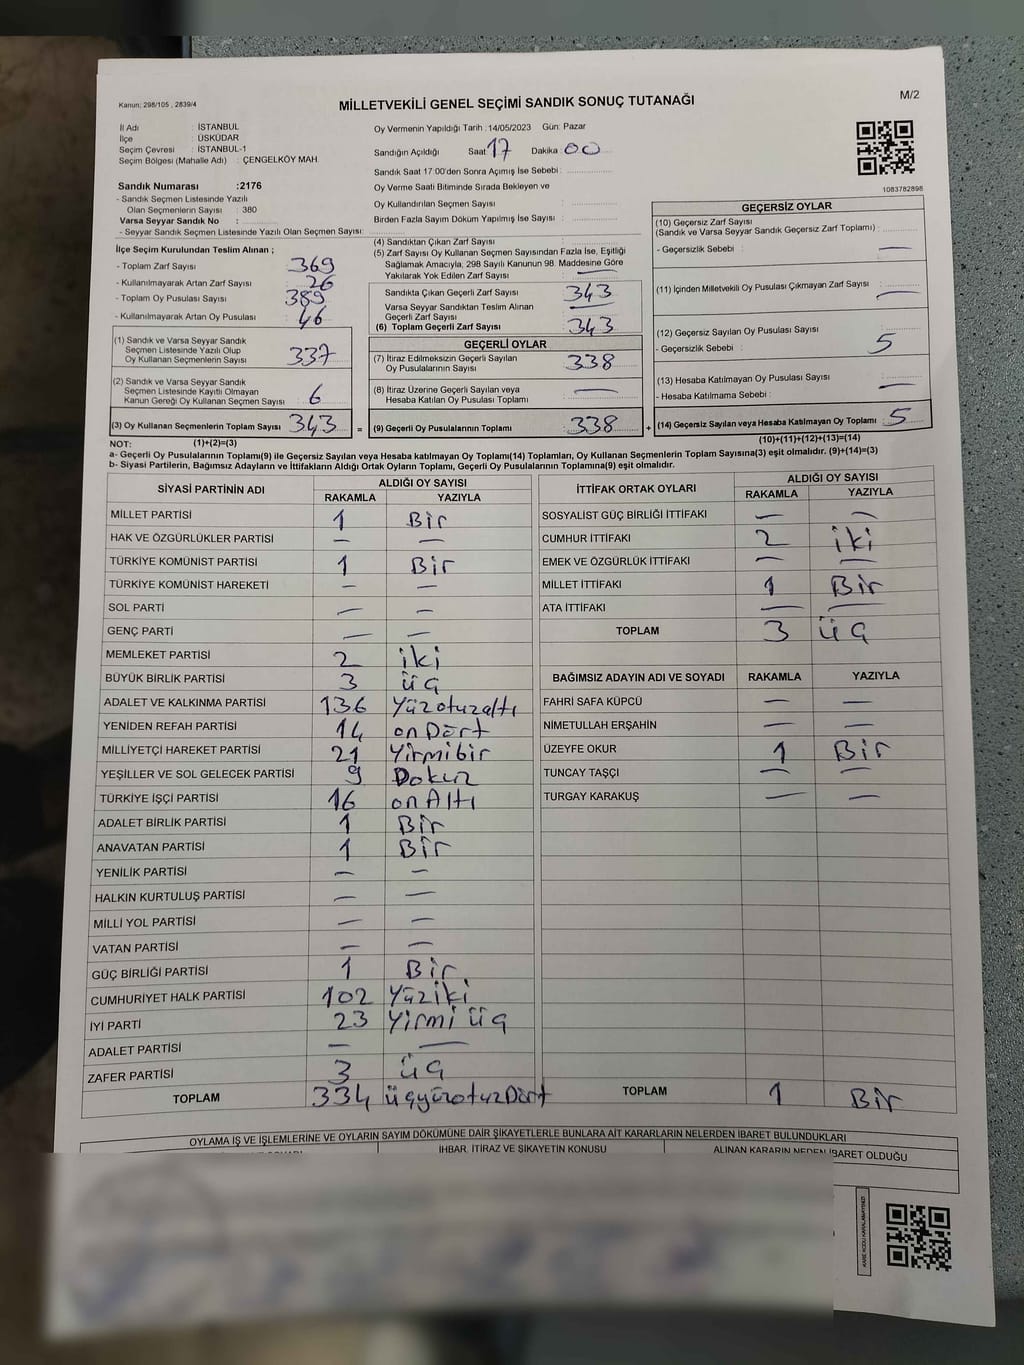 Kanun; 298/105 , 2839/4
MİLLETVEKİLİ GENEL SEÇİMİ SANDIK SONUÇ TUTANAĞI
M/2
İl Adı : İSTANBUL
İlçe : ÜSKÜDAR
Seçim Çevresi : İSTANBUL-1
Seçim Bölgesi (Mahalle Adı) : ÇENGELKÖY MAH.
Sandık Numarası :2176
- Sandık Seçmen Listesinde Yazılı
Olan Seçmenlerin Sayısı : 380
Varsa Seyyar Sandık No :
- Seyyar Sandık Seçmen Listesinde Yazılı Olan Seçmen Sayısı:
Oy Vermenin Yapıldığı Tarih :14/05/2023 Gün: Pazar
Sandığın Açıldığı Saat 17 Dakika 00
Sandık Saat 17:00'den Sonra Açılmış İse Sebebi :
Oy Verme Saati Bitiminde Sırada Bekleyen ve
Oy Kullandırılan Seçmen Sayısı :
Birden Fazla Sayım Döküm Yapılmış İse Sayısı :
1083782898
İlçe Seçim Kurulundan Teslim Alınan ;
- Toplam Zarf Sayısı : 369
- Kullanılmayarak Artan Zarf Sayısı : 26
- Toplam Oy Pusulası Sayısı : 389
- Kullanılmayarak Artan Oy Pusulası : 46
(1) Sandık ve Varsa Seyyar Sandık
Seçmen Listesinde Yazılı Olup
Oy Kullanan Seçmenlerin Sayısı : 337
(2) Sandık ve Varsa Seyyar Sandık
Seçmen Listesinde Kayıtlı Olmayan
Kanun Gereği Oy Kullanan Seçmen Sayısı : 6
(3) Oy Kullanan Seçmenlerin Toplam Sayısı : 343 =
(4) Sandıktan Çıkan Zarf Sayısı :
(5) Zarf Sayısı Oy Kullanan Seçmen Sayısından Fazla İse, Eşitliği
Sağlamak Amacıyla, 298 Sayılı Kanunun 98. Maddesine Göre
Yakılarak Yok Edilen Zarf Sayısı : —
Sandıkta Çıkan Geçerli Zarf Sayısı : 343
Varsa Seyyar Sandıktan Teslim Alınan
Geçerli Zarf Sayısı : —
(6) Toplam Geçerli Zarf Sayısı : 343
GEÇERLİ OYLAR
(7) İtiraz Edilmeksizin Geçerli Sayılan
Oy Pusulalarının Sayısı : 338
(8) İtiraz Üzerine Geçerli Sayılan veya
Hesaba Katılan Oy Pusulası Toplamı : —
(9) Geçerli Oy Pusulalarının Toplamı : 338 +
GEÇERSİZ OYLAR
(10) Geçersiz Zarf Sayısı
(Sandık ve Varsa Seyyar Sandık Geçersiz Zarf Toplamı) :
- Geçersizlik Sebebi : —
(11) İçinden Milletvekili Oy Pusulası Çıkmayan Zarf Sayısı : —
(12) Geçersiz Sayılan Oy Pusulası Sayısı :
- Geçersizlik Sebebi : 5
(13) Hesaba Katılmayan Oy Pusulası Sayısı : —
- Hesaba Katılmama Sebebi :
(14) Geçersiz Sayılan veya Hesaba Katılmayan Oy Toplamı : 5
NOT: (1)+(2)=(3) (10)+(11)+(12)+(13)=(14)
a- Geçerli Oy Pusulalarının Toplamı(9) ile Geçersiz Sayılan veya Hesaba katılmayan Oy Toplamı(14) Toplamları, Oy Kullanan Seçmenlerin Toplam Sayısına(3) eşit olmalıdır. (9)+(14)=(3)
b- Siyasi Partilerin, Bağımsız Adayların ve İttifakların Aldığı Ortak Oyların Toplamı, Geçerli Oy Pusulalarının Toplamına(9) eşit olmalıdır.
SİYASİ PARTİNİN ADI ALDIĞI OY SAYISI
RAKAMLA YAZIYLA
MİLLET PARTİSİ 1 Bir
HAK VE ÖZGÜRLÜKLER PARTİSİ — —
TÜRKİYE KOMÜNİST PARTİSİ 1 Bir
TÜRKİYE KOMÜNİST HAREKETİ — —
SOL PARTİ — —
GENÇ PARTİ — —
MEMLEKET PARTİSİ 2 iki
BÜYÜK BİRLİK PARTİSİ 3 üç
ADALET VE KALKINMA PARTİSİ 136 Yüzotuzaltı
YENİDEN REFAH PARTİSİ 14 onDört
MİLLİYETÇİ HAREKET PARTİSİ 21 Yirmibir
YEŞİLLER VE SOL GELECEK PARTİSİ 9 Dokuz
TÜRKİYE İŞÇİ PARTİSİ 16 onAltı
ADALET BİRLİK PARTİSİ 1 Bir
ANAVATAN PARTİSİ 1 Bir
YENİLİK PARTİSİ — —
HALKIN KURTULUŞ PARTİSİ — —
MİLLİ YOL PARTİSİ — —
VATAN PARTİSİ — —
GÜÇ BİRLİĞİ PARTİSİ 1 Bir
CUMHURİYET HALK PARTİSİ 102 Yüziki
İYİ PARTİ 23 Yirmi üç
ADALET PARTİSİ — —
ZAFER PARTİSİ 3 üç
TOPLAM 334 üçyüzotuzDört
İTTİFAK ORTAK OYLARI ALDIĞI OY SAYISI
RAKAMLA YAZIYLA
SOSYALİST GÜÇ BİRLİĞİ İTTİFAKI — —
CUMHUR İTTİFAKI 2 iki
EMEK VE ÖZGÜRLÜK İTTİFAKI — —
MİLLET İTTİFAKI 1 Bir
ATA İTTİFAKI — —
TOPLAM 3 üç
BAĞIMSIZ ADAYIN ADI VE SOYADI RAKAMLA YAZIYLA
FAHRİ SAFA KÜPCÜ — —
NİMETULLAH ERŞAHİN — —
ÜZEYFE OKUR 1 Bir
TUNCAY TAŞÇI — —
TURGAY KARAKUŞ — —
TOPLAM 1 Bir
OYLAMA İŞ VE İŞLEMLERİNE VE OYLARIN SAYIM DÖKÜMÜNE DAİR ŞİKAYETLERLE BUNLARA AİT KARARLARIN NELERDEN İBARET BULUNDUKLARI
İHBAR, İTİRAZ VE ŞİKAYETİN KONUSU
ALINAN KARARIN NEDEN İBARET OLDUĞU